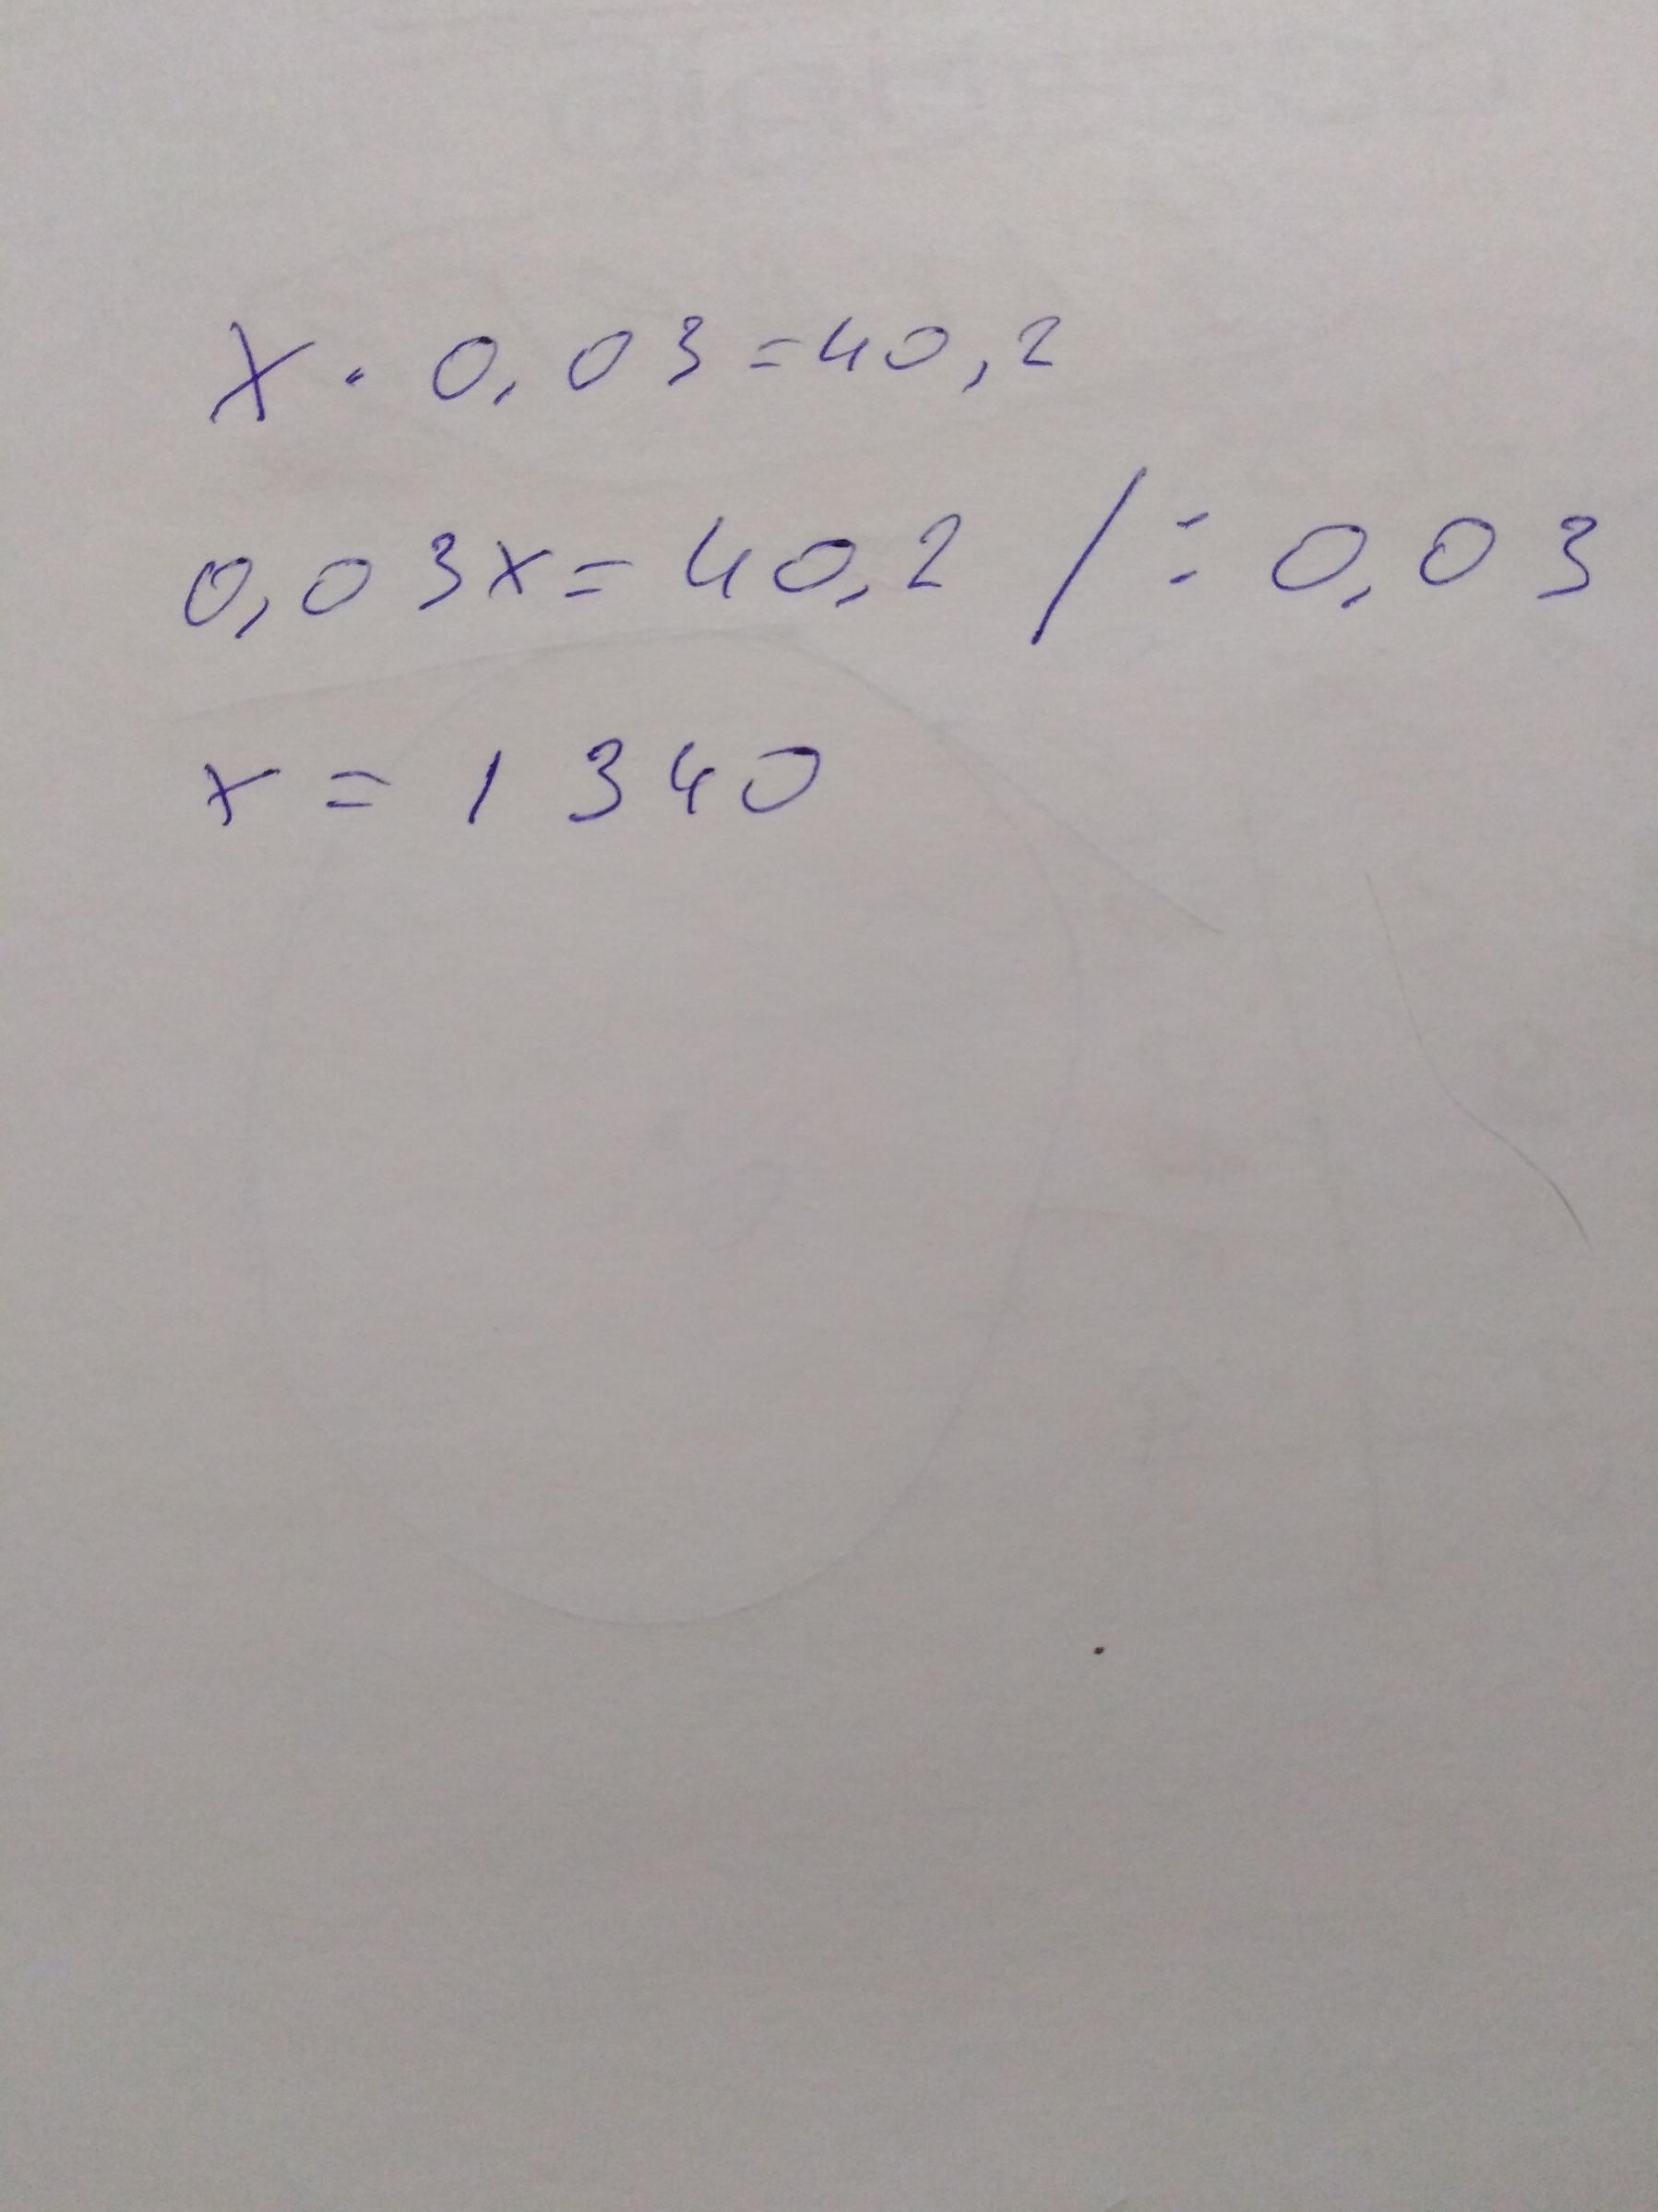 x · 0,03=40,2
0,03x=40,2 /:0,03
x=1340